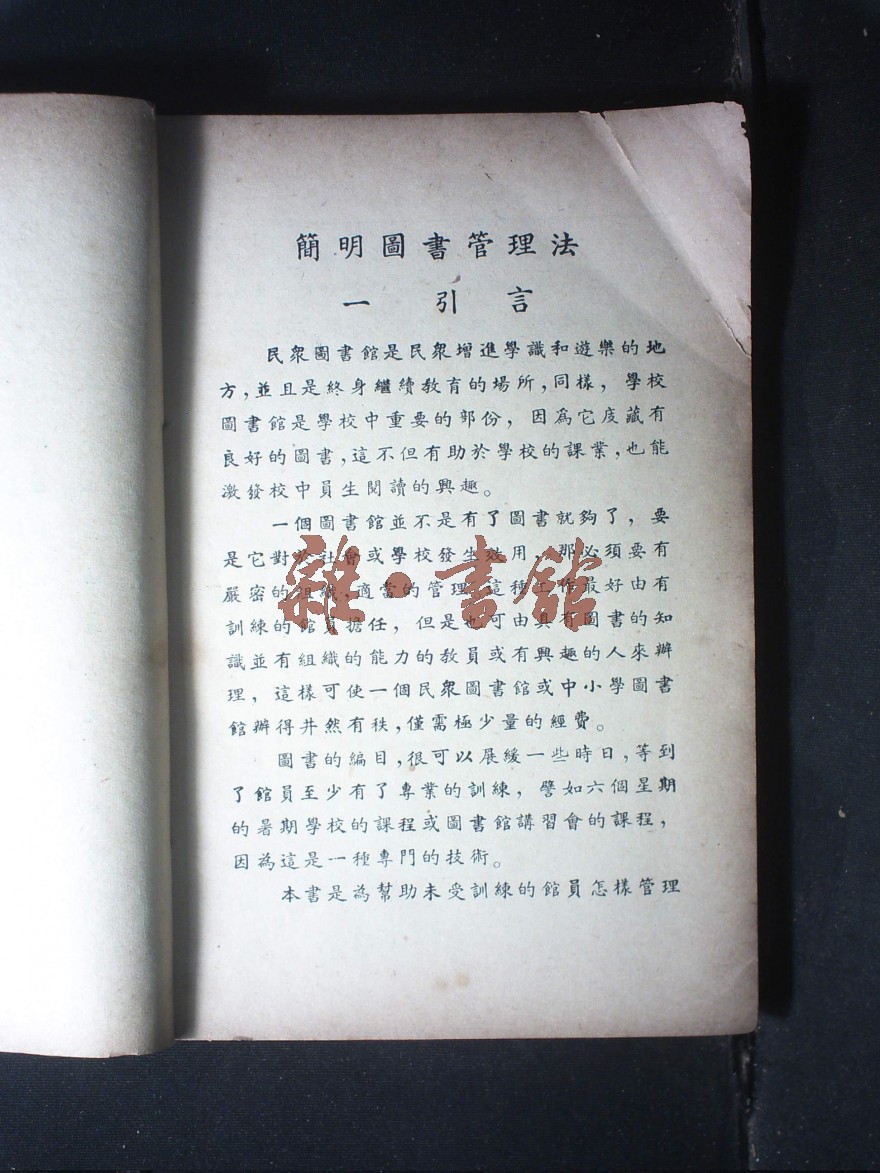 簡明圖書管理法
一 引言
民衆圖書館是民衆增進學識和遊樂的地
方，並且是終身繼續教育的場所，同樣，學校
圖書館是學校中重要的部份，因為它庋藏有
良好的圖書，這不但有助於學校的課業，也能
激發校中員生閱讀的興趣。
一個圖書館並不是有了圖書就夠了，要
是它對於社會或學校發生效用，那必須要有
嚴密的組織，適當的管理，這種工作最好由有
訓練的館員擔任，但是也可由具有圖書的知
識並有組織的能力的教員或有興趣的人來辦
理，這樣可使一個民衆圖書館或中小學圖書
館辦得井然有秩，僅需極少量的經費。
圖書的編目，很可以展緩一些時日，等到
了館員至少有了專業的訓練，譬如六個星期
的暑期學校的課程或圖書館講習會的課程，
因為這是一種專門的技術。
本書是為幫助未受訓練的館員怎樣管理
雜·書館